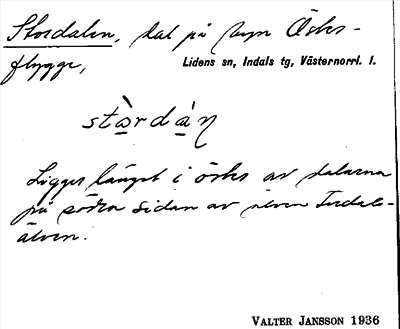 Stordalen, dal på byn Öster-
flygge,
Lidens sn, Indals tg, Västernorrl. l.
stò̱rda̱´ɳ
Ligger längst i öster av dalarna
på södra sidan av älven Indals-
älven.
VALTER JANSSON 1936